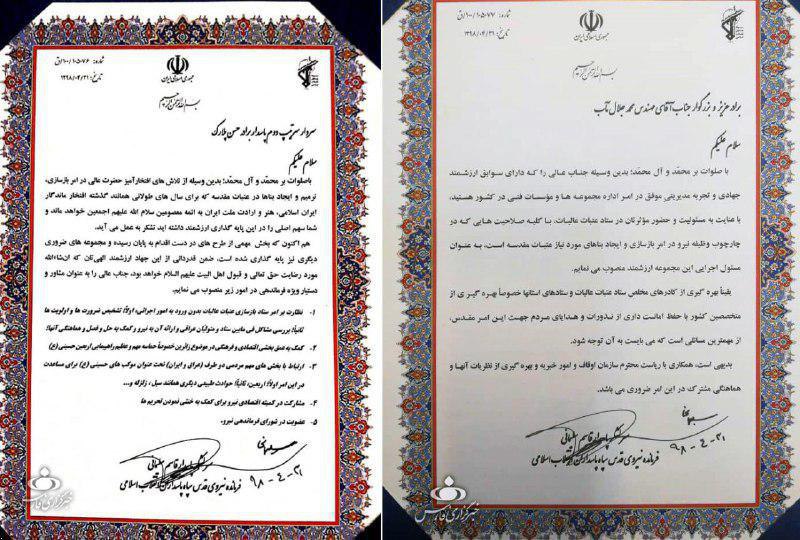 شماره: ۱۰۰/۱۰۵۰۷۶/ق
تاریخ: ۱۳۹۸/۰۴/۳۱
جمهوری اسلامی ایران
بسم الله الرحمن الرحیم
سردار سرتیپ دوم پاسدار برادر حسن پلارک
سلام علیکم
باصلوات بر محمّد و آل محمّد؛ بدین وسیله از تلاش های افتخارآمیز حضرت عالی در امر بازسازی،
ترمیم و ایجاد بناها در عتبات مقدسه که برای سال های طولانی همانند گذشته افتخار ماندگار
ایران اسلامی، هنر و ارادت ملت ایران به ائمه معصومین سلام الله علیهم اجمعین خواهد ماند و
شما سهم اصلی را در این پایه گذاری ارزشمند داشته اید تشکر به عمل می آید.
هم اکنون که بخش مهمی از طرح های در دست اقدام به پایان رسیده و مجموعه های ضروری
دیگری نیز پایه گذاری شده است، ضمن قدردانی از این جهاد ارزشمند الهی‌تان که ان‌شاءالله
مورد رضایت حق تعالی و قبول اهل البیت علیهم السلام خواهد بود، جناب عالی را به عنوان مشاور و
دستیار ویژه فرماندهی در امور زیر منصوب می نمایم.
۱- نظارت بر امر ستاد بازسازی عتبات عالیات بدون ورود به امور اجرایی، اولاً؛ تشخیص ضرورت ها و اولویت ها
ثانیاً؛ بررسی مشکل فی مابین ستاد و متولیان عراقی و ارائه آن به نیرو و کمک به حل و فصل و هماهنگی آنها؛
۲- کمک به عمق بخشی اقتصادی و فرهنگی در موضوع زائرین خصوصاً حماسه مهم و عظیم راهپیمایی اربعین حسینی (ع)
۳- ارتباط با بخش های مهم مردمی دو طرف (عراق و ایران) تحت عنوان موکب های حسینی (ع) برای مساعدت
در این امر اولاً؛ اربعین، ثانیاً؛ حوادث طبیعی دیگری همانند سیل، زلزله و...
۴- مشارکت در کمیته اقتصادی نیرو برای کمک به خنثی نمودن تحریم ها
۵- عضویت در شورای فرماندهی نیرو.
سرلشکر پاسدار قاسم سلیمانی
فرمانده نیروی قدس سپاه پاسداران انقلاب اسلامی
۹۸-۴-۳۱
خبرگزاری فارس
شماره: ۱۰۰/۱۰۵۰۷۷/ق
تاریخ: ۱۳۹۸/۰۴/۳۱
جمهوری اسلامی ایران
بسم الله الرحمن الرحیم
برادر عزیز و بزرگوار جناب آقای مهندس محمد جلال مآب
سلام علیکم
با صلوات بر محمّد و آل محمّد؛ بدین وسیله جناب عالی را که دارای سوابق ارزشمند
جهادی و تجربه مدیریتی موفق در امر اداره مجموعه ها و مؤسسات فنی در کشور هستید،
با عنایت به مسئولیت و حضور مؤثرتان در ستاد عتبات عالیات، با کلیه صلاحیت هایی که در
چارچوب وظیفه نیرو در امر بازسازی و ایجاد بناهای مورد نیاز عتبات مقدسه است، به عنوان
مسئول اجرایی این مجموعه ارزشمند منصوب می نمایم.
یقیناً بهره گیری از کادرهای مخلص ستاد عتبات عالیات و ستادهای استانها خصوصاً بهره گیری از
متخصصین کشور با حفظ امانت داری از نذورات و هدایای مردم جهت این امر مقدس،
از مهمترین مسائلی است که می بایست به آن توجه شود.
بدیهی است، همکاری با ریاست محترم سازمان اوقاف و امور خیریه و بهره گیری از نظریات آنها و
هماهنگی مشترک در این امر ضروری می باشد.
سرلشکر پاسدار قاسم سلیمانی
فرمانده نیروی قدس سپاه پاسداران انقلاب اسلامی
۹۸-۴-۳۱
خبرگزاری فارس